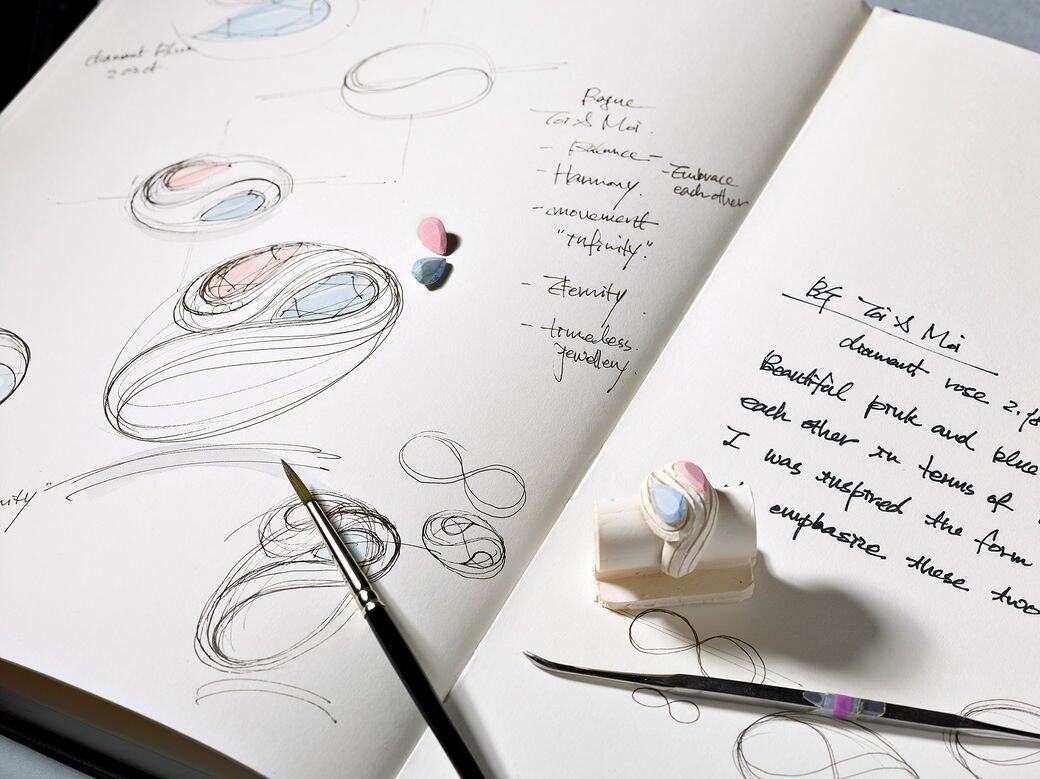 diamant bleu
2.03 ct.
Bague
Toi & Moi.
- Balance - - Embrace
each other
- Harmony.
- movement
"Infinity".
- Eternity
- timeless.
jewellery.
nity"
BG Toi & Moi
diamant rose 2.18
Beautiful pink and blue
each other in terms of
I was inspired the form
emphasize these two